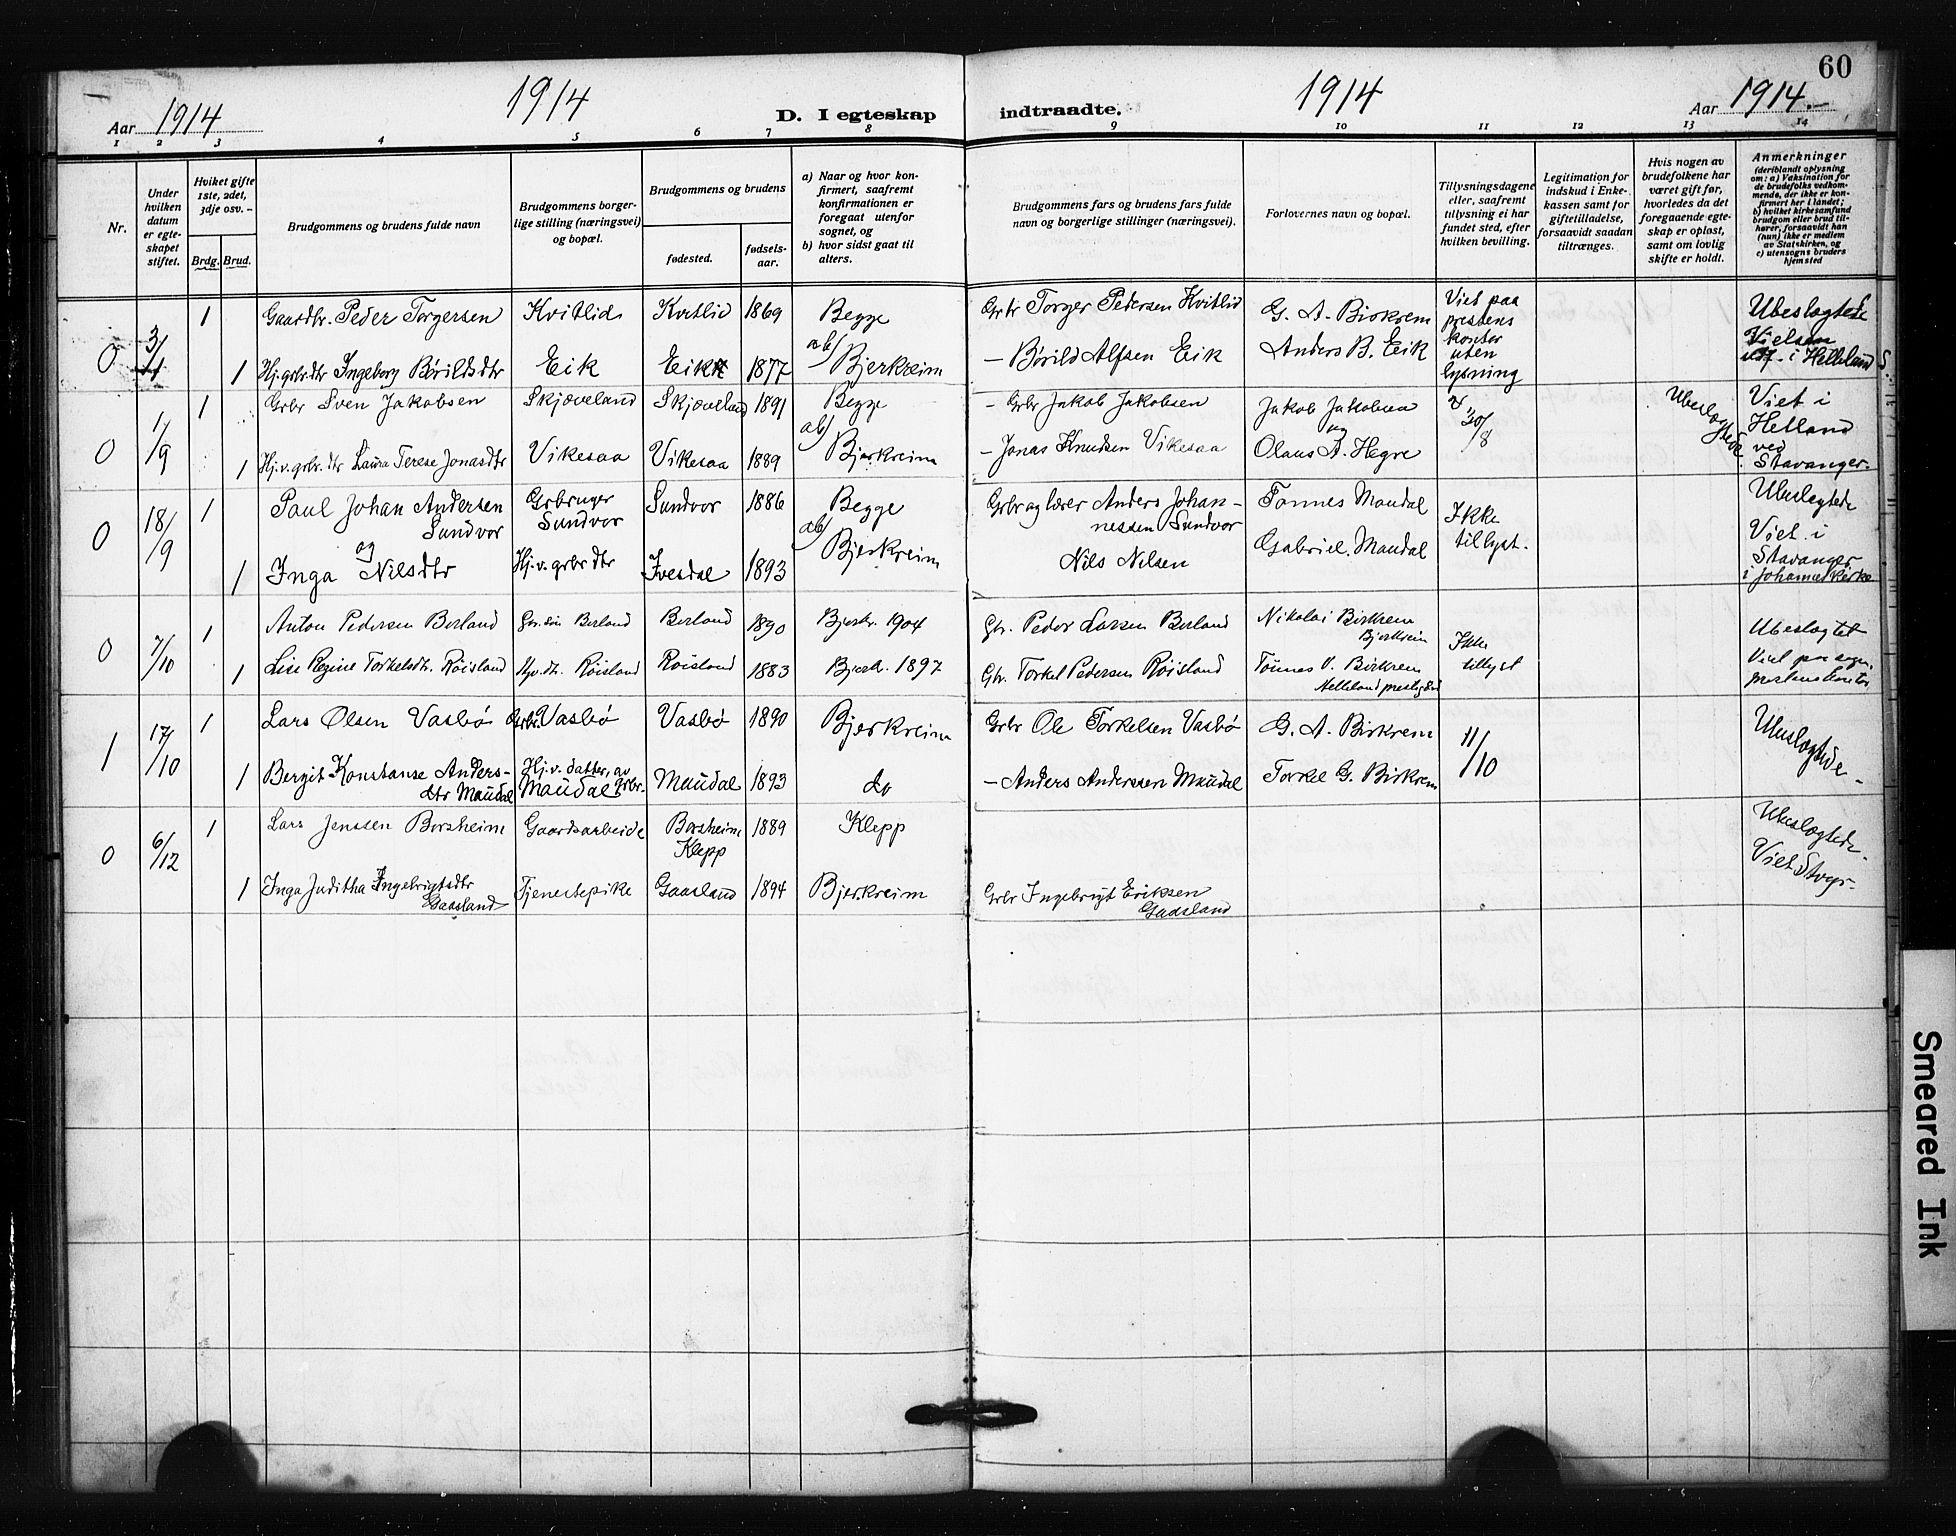 60
Aar 1914
1914
D. I egteskap
indtraadte.
1914
Aar 1914.
1 2 3 4 5 6 7 8 9 10 11 12 13 14
Nr.
Under hvilken datum er egteskapet stiftet.
Hviket gifte 1ste, 2det, 3dje osv. -
Brdg. Brud.
Brudgommens og brudens fulde navn
Brudgommens borgerlige stilling (næringsvei) og bopæl.
Brudgommens og brudens
fødested.
fødselsaar.
a) Naar og hvor konfirmert, saafremt konfirmationen er foregaat utenfor sognet, og
b) hvor sidst gaat til alters.
Brudgommens fars og brudens fars fulde navn og borgerlige stillinger (næringsvei).
Forlovernes navn og bopæl.
Tillysningsdagene eller, saafremt tillysning ei har fundet sted, efter hvilken bevilling.
Legitimation for indskud i Enkekassen samt for giftetilladelse, forsaavidt saadan tiltrænges.
Hvis nogen av brudefolkene har været gift før, hvorledes da det foregaaende egteskap er opløst, samt om lovlig skifte er holdt.
Anmerkninger (deriblandt oplysning om: a) Vaksination for de brudefolks vedkommende, der ikke er konfirmert her i landet; b) hvilket kirkesamfund brudgom eller brud tilhører, forsaavidt han (hun) ikke er medlem av Statskirken, og c) utensogns bruders hjemsted
0 3/4 1 Gaardbr. Peder Torgersen Kvitlid Kvitlid 1869 Begge Grbr Torger Pedersen Kvitlid G. A. Birkrem Viet paa prestens kontor uten lysning Ubeslegtede
1 Hj. grbr dtr Ingeborg Børildsdtr Eik Eik 1877 ab/ Bjerkreim — Børild Alfsen Eik Anders B. Eik Vielsen i Helleland S.
0 1/9 1 Grbr Sven Jakobsen Skjæveland Skjæveland 1891 Begge - Grbr Jakob Jakobsen Jakob Jakobsen og 30/8 Ubeslegtede. Viet i Helland ved Stavanger.
1 Hj. v. grbr. dtr Laura Terese Jonasdtr Vikesaa Vikesaa 1889 ab/ Bjerkreim - Jonas Knudsen Vikesaa Olaus A. Hegre
0 18/9 1 Paul Johan Andersen Sundvor Grbruger Sundvor Sundvor 1886 Begge Grbr og lærer Anders Johannessen Sundvor Tønnes Maudal Ikke tillyst. Ubeslegtede
og
1 Inga Nilsdtr Hj. v. grbr dtr Ivesdal 1893 ab/ Bjerkreim Nils Nilsen Gabriel Maudal Viet i Stavanger i Johannes Kirke
0 7/10 1 Anton Pedersen Berland Gbr. søn Berland Berland 1890 Bjerkr. 1904 Gbr. Peder Larsen Berland Nikolai Birkrem Bjerkreim Ikke tillyst Ubeslegtet
1 Lise Regine Torkelsdtr. Røisland Røisland Røisland 1883 Bjerk. 1897 Gbr. Torkel Pedersen Røisland Tønnes V. Birkrem Helleland prestegjeld Viet paa sogneprestens kontor
1 17/10 1 Lars Olsen Vasbø Grbr. Vasbø Vasbø 1890 Bjerkreim Grbr Ole Torkelsen Vasbø G. A. Birkrem 11/10 Ubeslegtede -
1 Bergit Konstanse Andersdtr Maudal Hj. v. datter av grbr. Maudal Maudal 1893 do — Anders Anderssen Maudal Torkel G. Birkrem
0 6/12 1 Lars Jenssen Borsheim Gaardsarbeide Borsheim Klepp 1889 Klepp Ubeslegtede. Viet
1 Inga Juditha Ingebrigtsdtr Gaasland Tjenestepike Gaasland 1894 Bjerkreim Grbr Ingebrigt Eriksen Gaasland
Smeared Ink